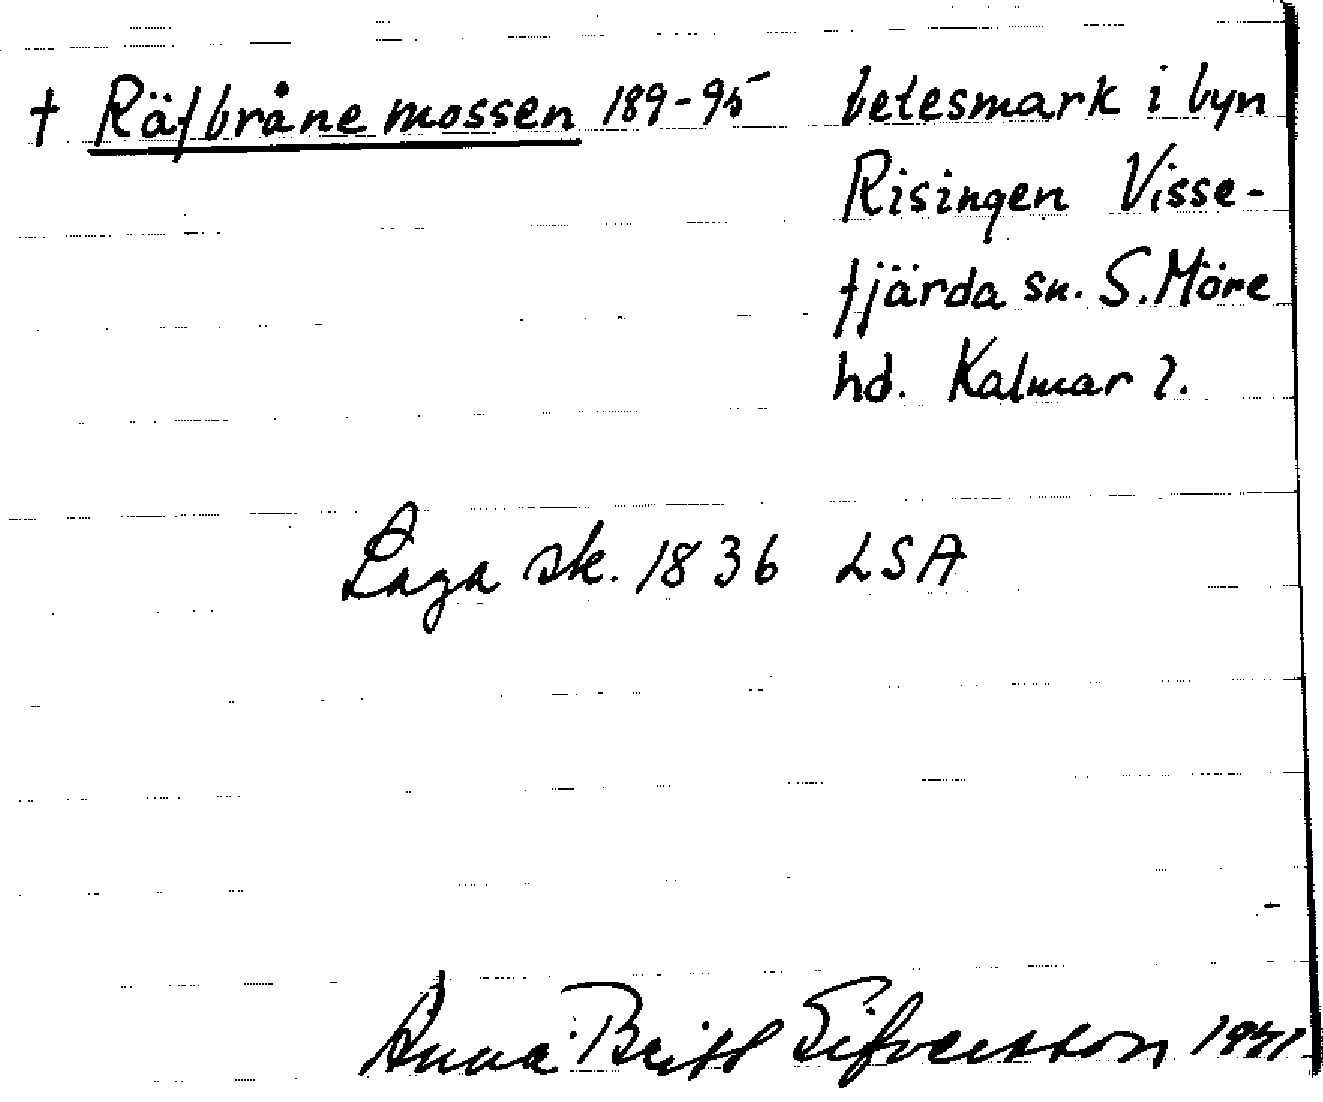 † Räfbråne mossen 189-95 betesmark i byn
Risingen Visse-
fjärda sn. S. Möre
hd. Kalmar l.
Laga sk. 1836 LSA
Anna-Britt Sifversson